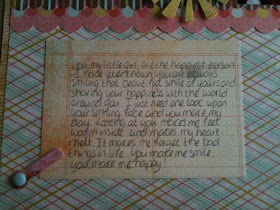 you my little girl, are the happiest person
I have ever known. you are always
smiling that beautiful smile of yours and
sharing your happiness with the world
around you. I just need one look upon
your smiling face and you make my
day. looking at you makes me feel
warm inside and makes my heart
melt. It makes me forget the bad
things in life. You make me smile,
you make me happy!